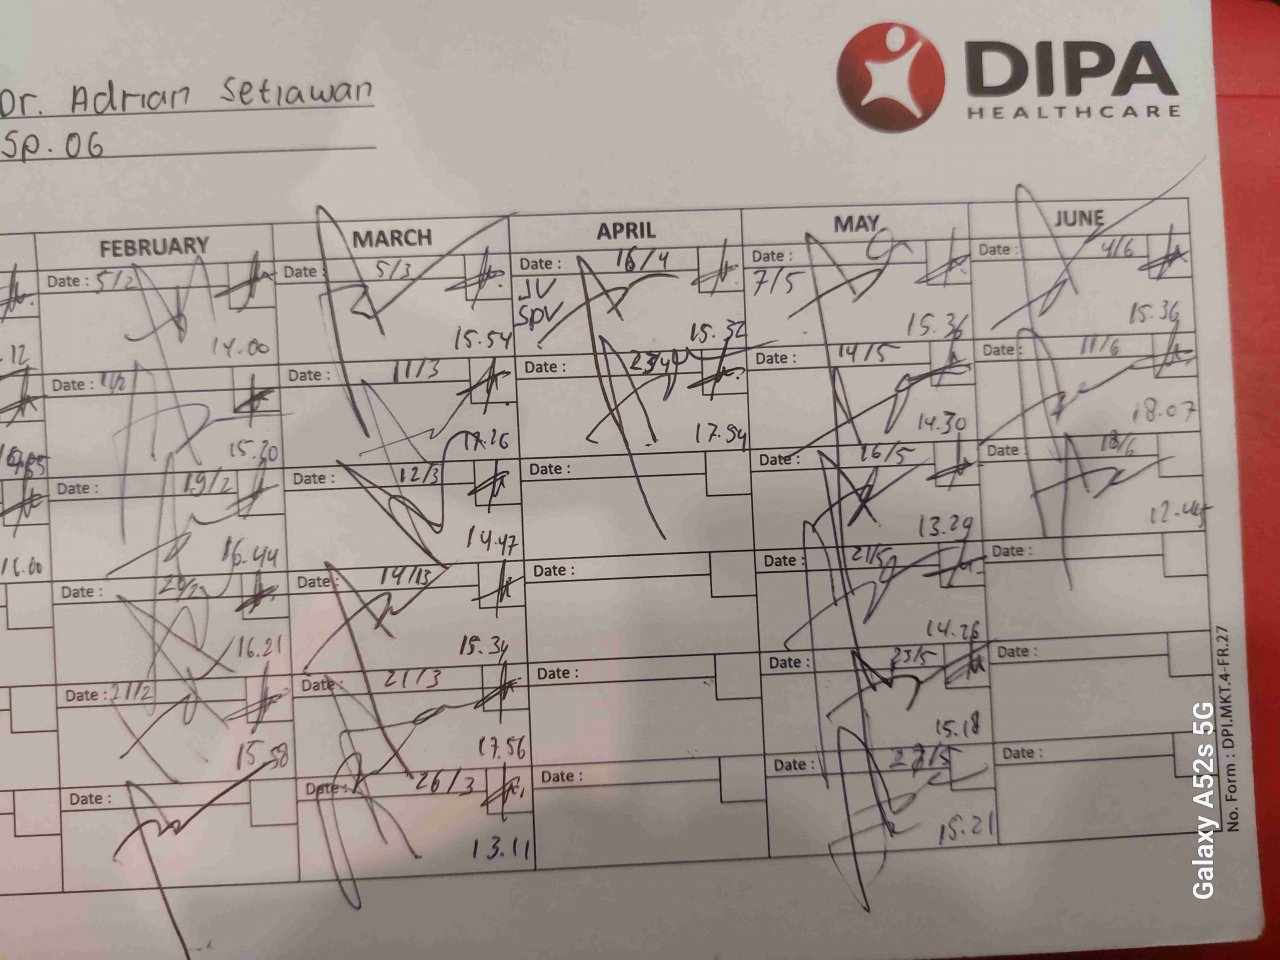 Dr. Adrian Setiawan
Sp. OG
DIPA
HEALTHCARE
FEBRUARY MARCH APRIL MAY JUNE
Date : 5/2 Date : 5/3 Date : 16/4 Date : 7/5 Date : 4/6
JV
SPV
.12 14.00 15.54 15.32 15.36 15.36
Date : Date : 11/3 Date : Date : 14/5 Date : 11/6
15.30 17.26 17.54 14.30 18.07
Date : 19/2 Date : 12/3 Date : Date : 16/5 Date : 18/6
16.00 16.44 14.47 13.29 12.45
Date : Date : 14/3 Date : Date : 21/5 Date :
16.21 15.34 14.26
Date : 21/2 Date : 21/3 Date : Date : 25/5 Date :
15.58 17.56 15.18
Date : Date : 26/3 Date : Date : 27/5 Date :
13.11 15.21
No. Form : DPI.MKT.4-FR.27
Galaxy A52s 5G